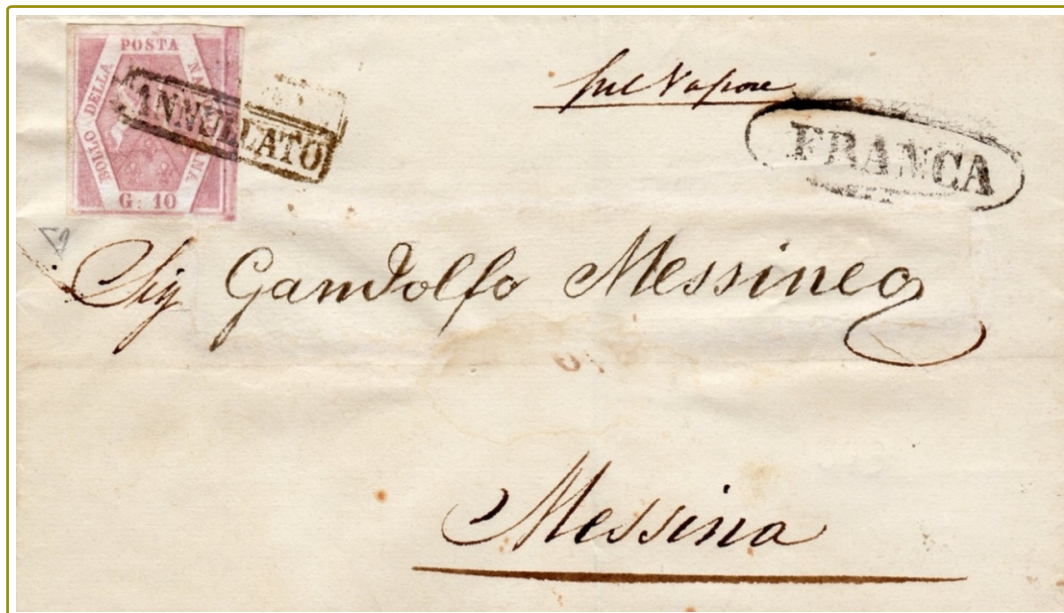 BOLLO DELLA POSTA NAPOLETANA
G. 10
ANNULLATO
sul Vapore
FRANCA
Sig Gandolfo Messineo
Messina